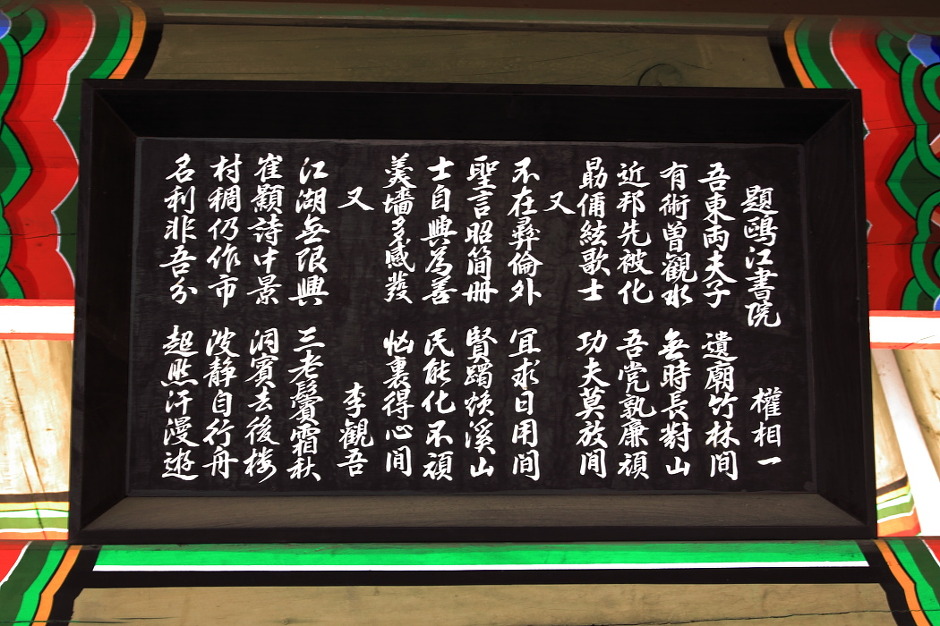 題鷗江書院 權相一
吾東両夫子 遺廟竹林間
有術曾観水 無時長對山
近邦先被化 吾党孰廉頑
勖俑絃歌士 功夫莫放間
又
不在彛倫外 宜求日用間
聖言昭簡冊 賢躅煥溪山
士自興為善 民能化不頑
羹墻多感發 怳裏得心间
又 李觀吾
江湖無限興 三老鬢霜秋
崔顥詩中景 洞賓去後楼
村稠仍作市 波静自行舟
名利非吾分 超然汗漫遊